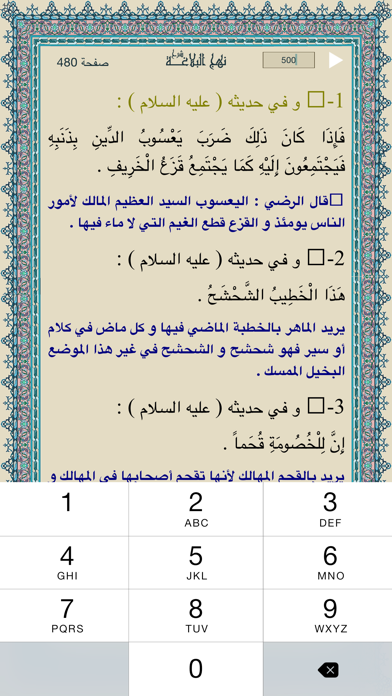 صفحة 480 نهج البلاغة 500
1-□ و في حديثه ( عليه السلام ) :
فَإِذَا كَانَ ذَلِكَ ضَرَبَ يَعْسُوبُ الدِّينِ بِذَنَبِهِ
فَيَجْتَمِعُونَ إِلَيْهِ كَمَا يَجْتَمِعُ قَزَعُ الْخَرِيفِ .
□قال الرضي : اليعسوب السيد العظيم المالك لأمور
الناس يومئذ و القزع قطع الغيم التي لا ماء فيها .
2-□ و في حديثه ( عليه السلام ) :
هَذَا الْخَطِيبُ الشَّحْشَحُ .
يريد الماهر بالخطبة الماضي فيها و كل ماض في كلام
أو سير فهو شحشح و الشحشح في غير هذا الموضع
البخيل الممسك .
3-□ و في حديثه ( عليه السلام ) :
إِنَّ لِلْخُصُومَةِ قُحَماً .
يريد بالقحم المهالك لأنها تقحم أصحابها في المهالك و
1 2 3
ABC DEF
4 5 6
GHI JKL MNO
7 8 9
PQRS TUV WXYZ
0